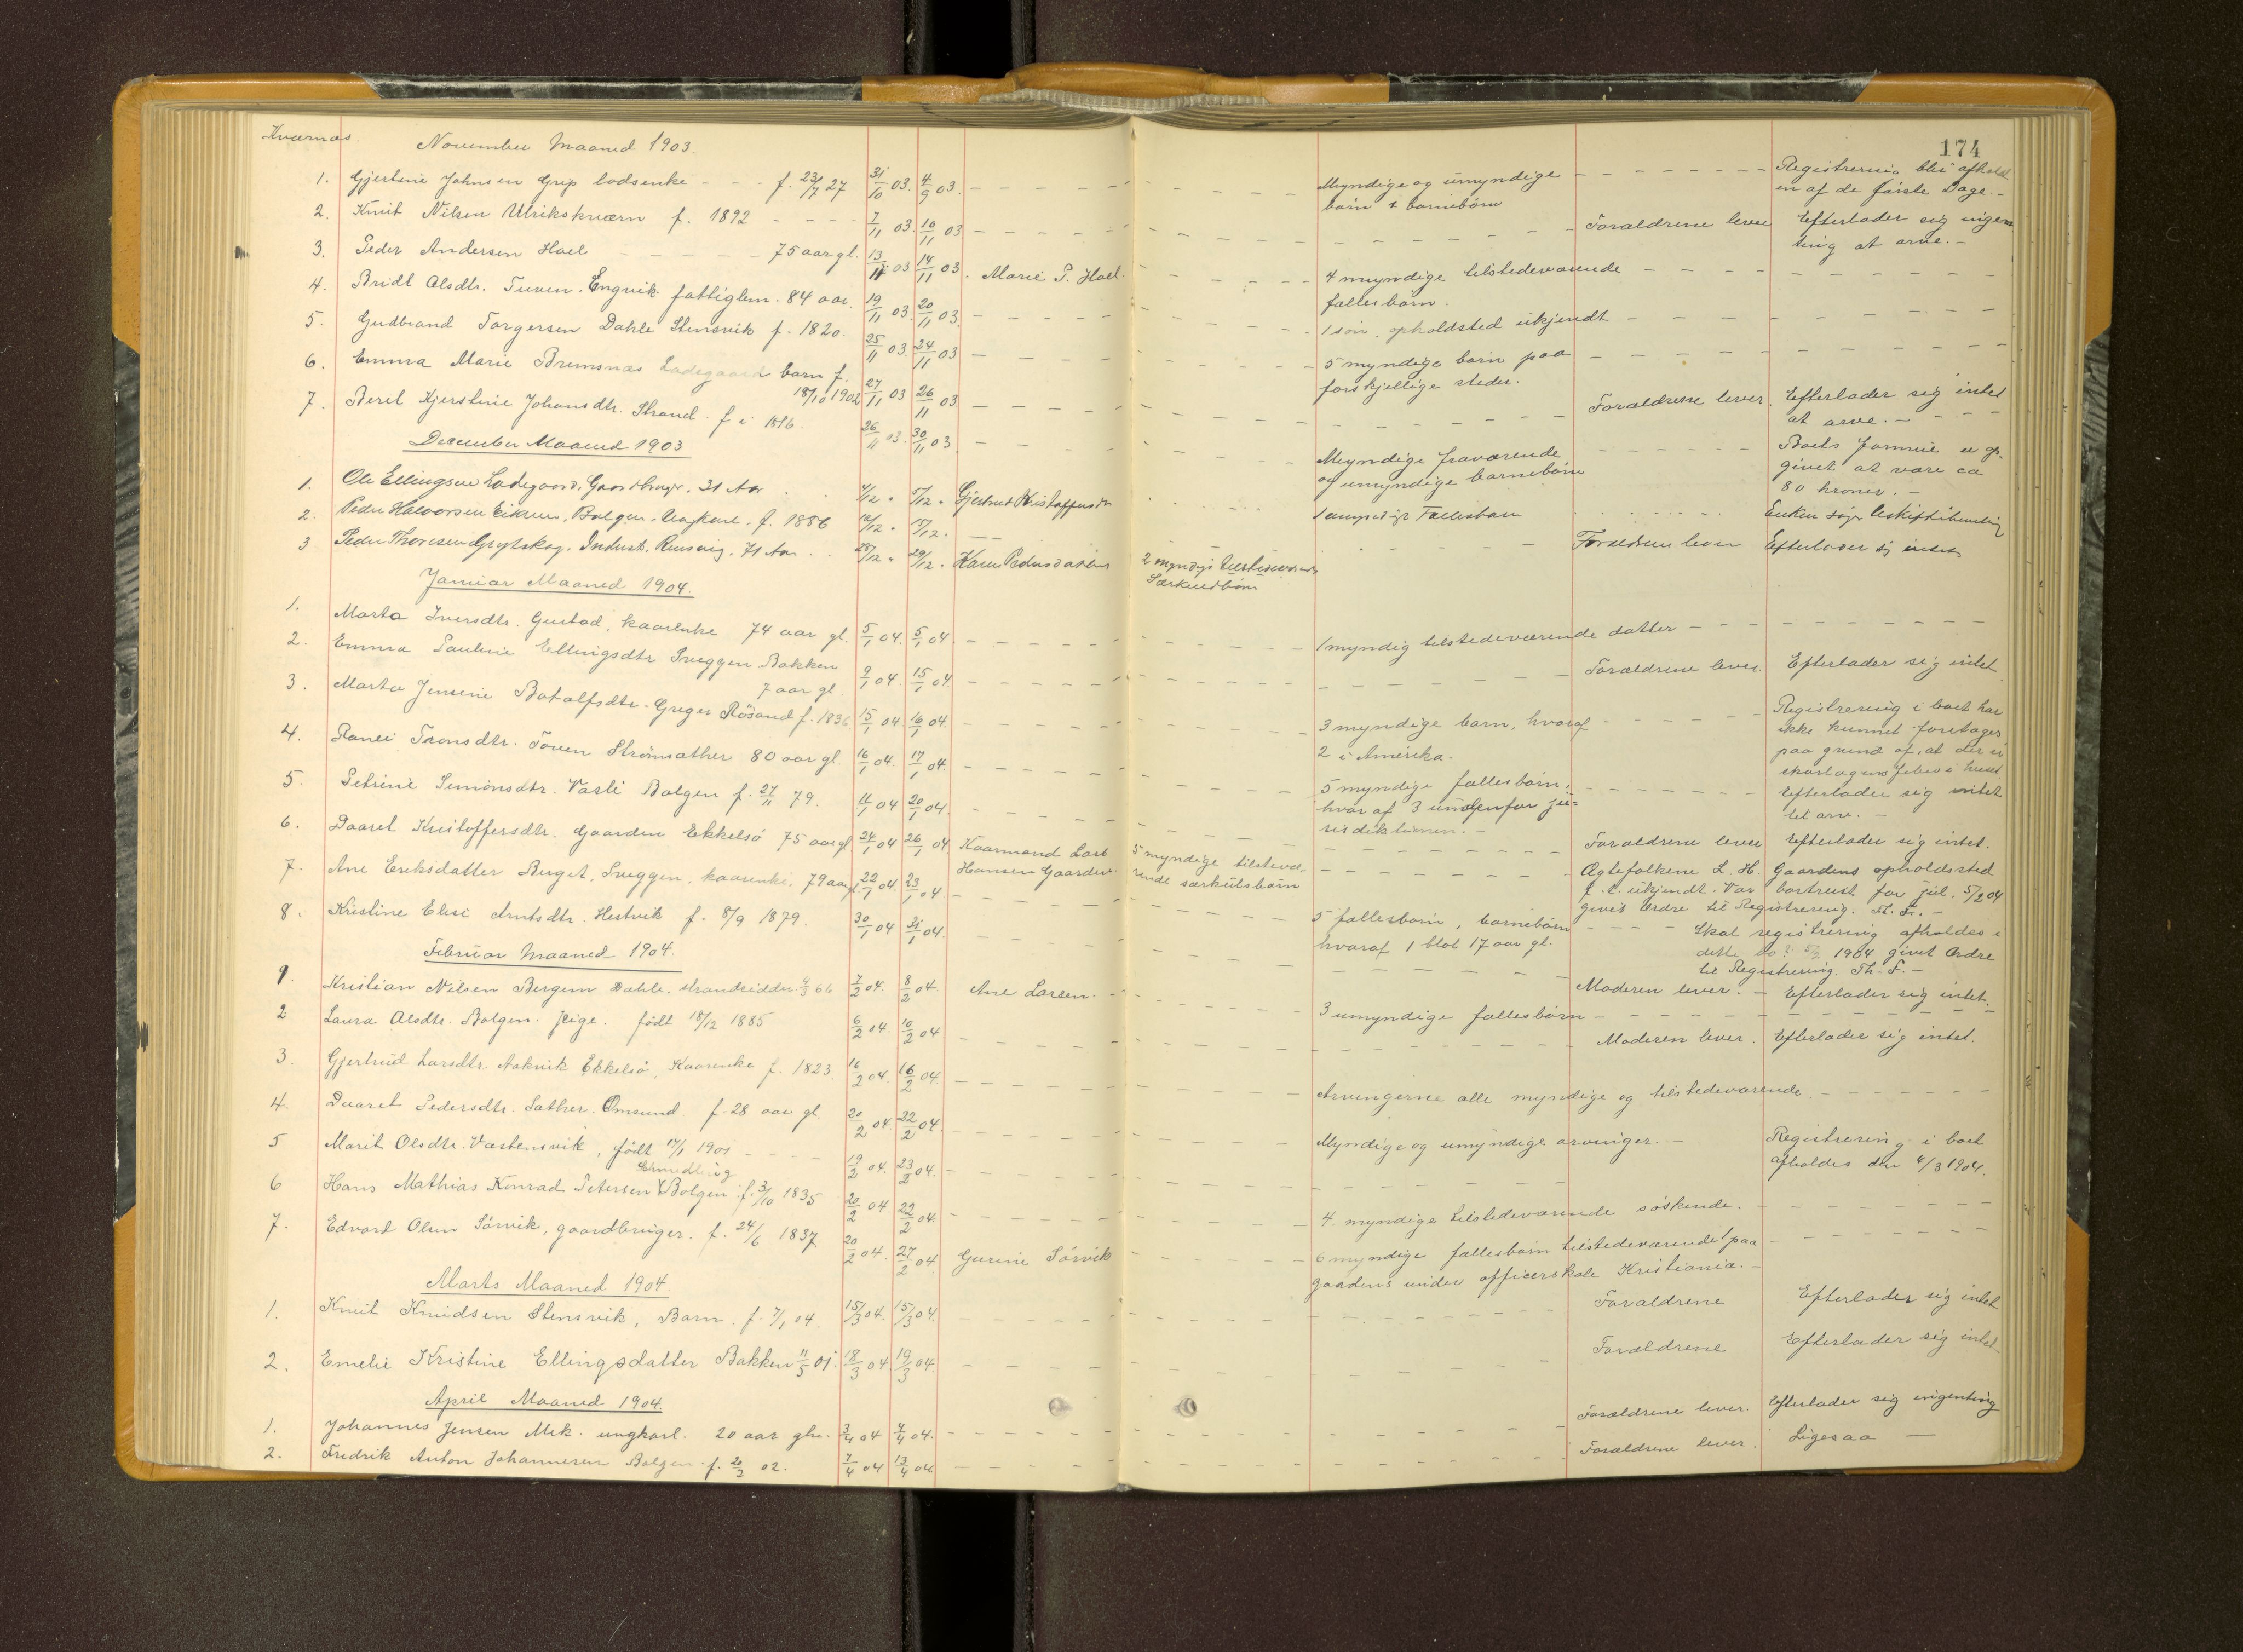 174
Kværnæs. November Maaned 1903.
1. Gjertine Johnsen Grip lodsenke - - - f. 23/7 27 31/10 03. 4/9 03. Myndige og umyndige børn & barnebørn Registrering blir afhold
en af de første Dage. -
2. Knut Nilsen Ulrikskværn f. 1892 - - - - 7/11 03. 10/11 03 Forældrene lever Efterlader sig ingen
ting at arve. -
3. Peder Andersen Hoel - - - - - 75 aar gl. 13/11 03 14/11 03. Marie P. Hoel. 4 myndige tilstedeværende
fællesbørn.
4. Bridt Olsdtr. Tuven. Engvik fattiglem. 84 aar. 19/11 03. 20/11 03. 1 søn, opholdsted ukjendt
5. Gudbrand Torgersen Dahle Stensvik f. 1820. 25/11 03. 24/11 03 5 myndige børn paa
forskjellige steder.
6. Emma Marie Bremsnæs Ladegaard barn f.
18/10 1902 27/11 03 26/11 03 Forældrene lever. Efterlader sig intet
at arve. -
7. Beret Kjerstine Johansdtr. Strand. f i 1816. 26/11 03. 30/11 03 Myndige fraværende
og umyndige barnebørn Boets formue er op-
givet at være ca
80 kroner. -
December Maaned 1903
1. Ole Ellingsen Ladegaard, Gaardbruger. 31 Aar 4/12 " 5/12 " Gjertrud Kristoffersdtr 1 umyndigt Fællesbarn Enken søger Uskiftebevilling
2. Peder Halvorsen Eikrem, Bolgen, Ungkarl, f. 1886 12/12 " 15/12 " Forældrene lever Efterlader sig intet
3 Peder Thoresen Grytskog. Inderst, Rensvig. 71 Aar 25/12 " 29/12 " Karen Pedersdatter 2 myndige tilstedeværende
Særkuldbørn
Januar Maaned 1904.
1. Marta Iversdtr. Gustad, kaarenke 74 aar gl. 5/1 04. 5/1 04. 1 myndig tilstedeværende datter
2. Emma Pauline Ellingsdtr Sveggen Bakken
7 aar gl. 9/1 04. 15/1 04. Forældrene lever. Efterlader sig intet
3. Marta Jensine Botolfsdtr. Greger Røsand f. 1836. 15/1 04. 16/1 04. 3 myndige børn, hvoraf
2 i Amerika. Registrering i boet har
ikke kunnet foretages
paa grund af, at der er
skarlagensfeber i huset
4. Ranei Tronsdtr. Toven Strømsæther 80 aar gl. 16/1 04. 17/1 04. 5 myndige fællesbørn,
hvoraf 3 udenfor ju-
risdiktionen. - Efterlader sig intet
til arv. -
5. Petrine Simonsdtr. Vasli Bolgen f. 27/11 79. 11/1 04 20/1 04. Forældrene lever Efterlader sig intet.
6. Daaret Kristoffersdtr. Gaarden Ekkelsø 75 aar gl 24/1 04 26/1 04. Kaarmand Lars
Hansen Gaarden. 5 myndige tilstevæ-
rende særkulsbørn Ægtefolkene L. H. Gaardens opholdssted
f. t. ukjendt. Var bortreist før jul. 5/2 04
givet ordre til Registrering. Th. F. -
7. Ane Eriksdatter Berget, Sveggen, kaarenke, 79 aar gl. 22/1 04. 23/1 04. 5 fællesbørn, barnebørn
hvoraf 1 blot 17 aar gl. Skal registrering afholdes i
dette bo? 5/2 1904 givet Ordre
til Registrering. Th. F. -
8. Kristine Elise Arntsdtr. Hestvik f. 8/9 1879. 30/1 04 31/1 04. Moderen lever. - Efterlader sig intet.
Februar Maaned 1904.
1. Kristian Nilsen Bergem Dahle. strandsidder. 4/3 66 7/2 04. 8/2 04. Ane Larsen. 3 umyndige fællesbørn
2 Laura Olsdtr. Bolgen. Pige. født 18/12 1885 6/2 04. 10/2 04 Moderen lever. Efterlader sig intet.
3. Gjertrud Larsdtr. Aakvik Ekkelsø, Kaarenke f. 1823. 16/2 04. 16/2 04. Arvingerne alle myndige og tilstedeværende
4. Daaret Pedersdtr. Sæther. Omsund f. 28 aar gl. 20/2 04. 22/2 04. Myndige og umyndige arvinger. - Registrering i boet
afholdes den 4/3 1904.
5 Marit Olsdtr. Vastensvik, født 14/1 1901 19/2 04. 23/2 04.
6 Hans Mathias Konrad Petersen Bolgen f. 3/10 1835 20/2 04 22/2 04 4 myndige tilstedeværende søskende.
7. Edvard Olsen Sørvik, gaardbruger. f. 24/6 1837 20/2 04. 27/2 04 Gurine Sørvik 6 myndige fællesbørn tilstedeværende 1 paa
gaardens underofficerskole Kristiania. -
Marts Maaned 1904
1. Knut Knudsen Stensvik, Barn. f. 7/1 04. 15/3 04. 15/3 04. Forældrene Efterlader sig intet
2. Emelie Kristine Ellingsdatter Bakken 11/5 01. 18/3 04. 19/3 04. Forældrene Efterlader sig intet
April Maaned 1904.
1. Johannes Jensen Mek. ungkarl. 20 aar glm. 3/4 04 7/4 04. Forældrene lever. Efterlader sig ingenting
2. Fredrik Anton Johannesen Bolgen. f. 20/3 02. 7/4 04 13/4 04 Forældrene lever. Ligesaa